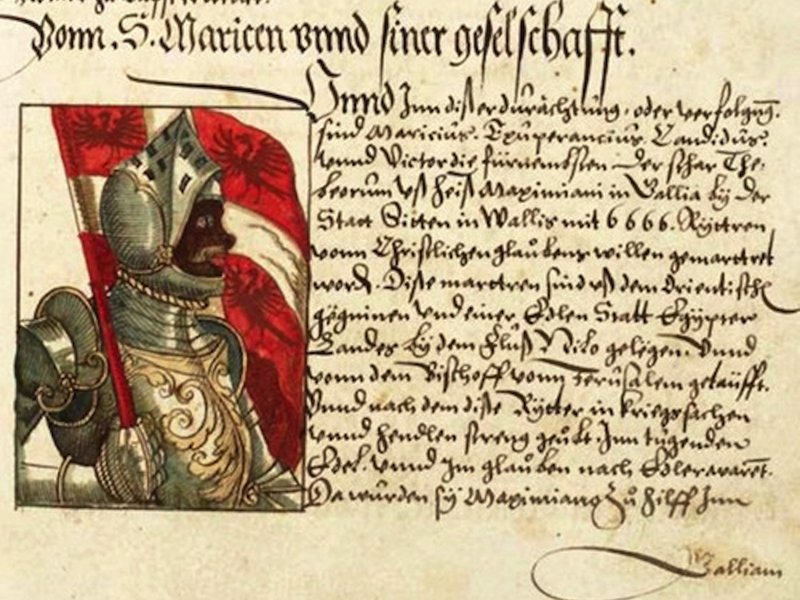 Vonn. S. Maricen vnnd siner geselschafft.
Vnnd Inn diser durächtung, oder verfolgung.
sind Maricius. Exuperancius. Candidus.
vnnd Victor die fürnembsten der schar The-
beorum vß heiß Maximiani in Gallia by der
Statt Sitten in Wallis mit 6666. Ryttren
vonn Christlichen glaubens willen gemartret
word. Dise martrer sind vß dem Orientische
gögninen vnd einer Edlen Statt Egypter
Landes by dem Fluß Nilo gelegen. Vnnd
vonn dem Bischoff vonn Jerusalem getäufft.
Vnnd nach dem dise Rytter in kriegssachen
vnnd hendlen streng geübt. Inn tugenden
Edel. vnnd Im glauben nach Edler
Da wurden sy Maximiano zu hilff Inn
Galliam